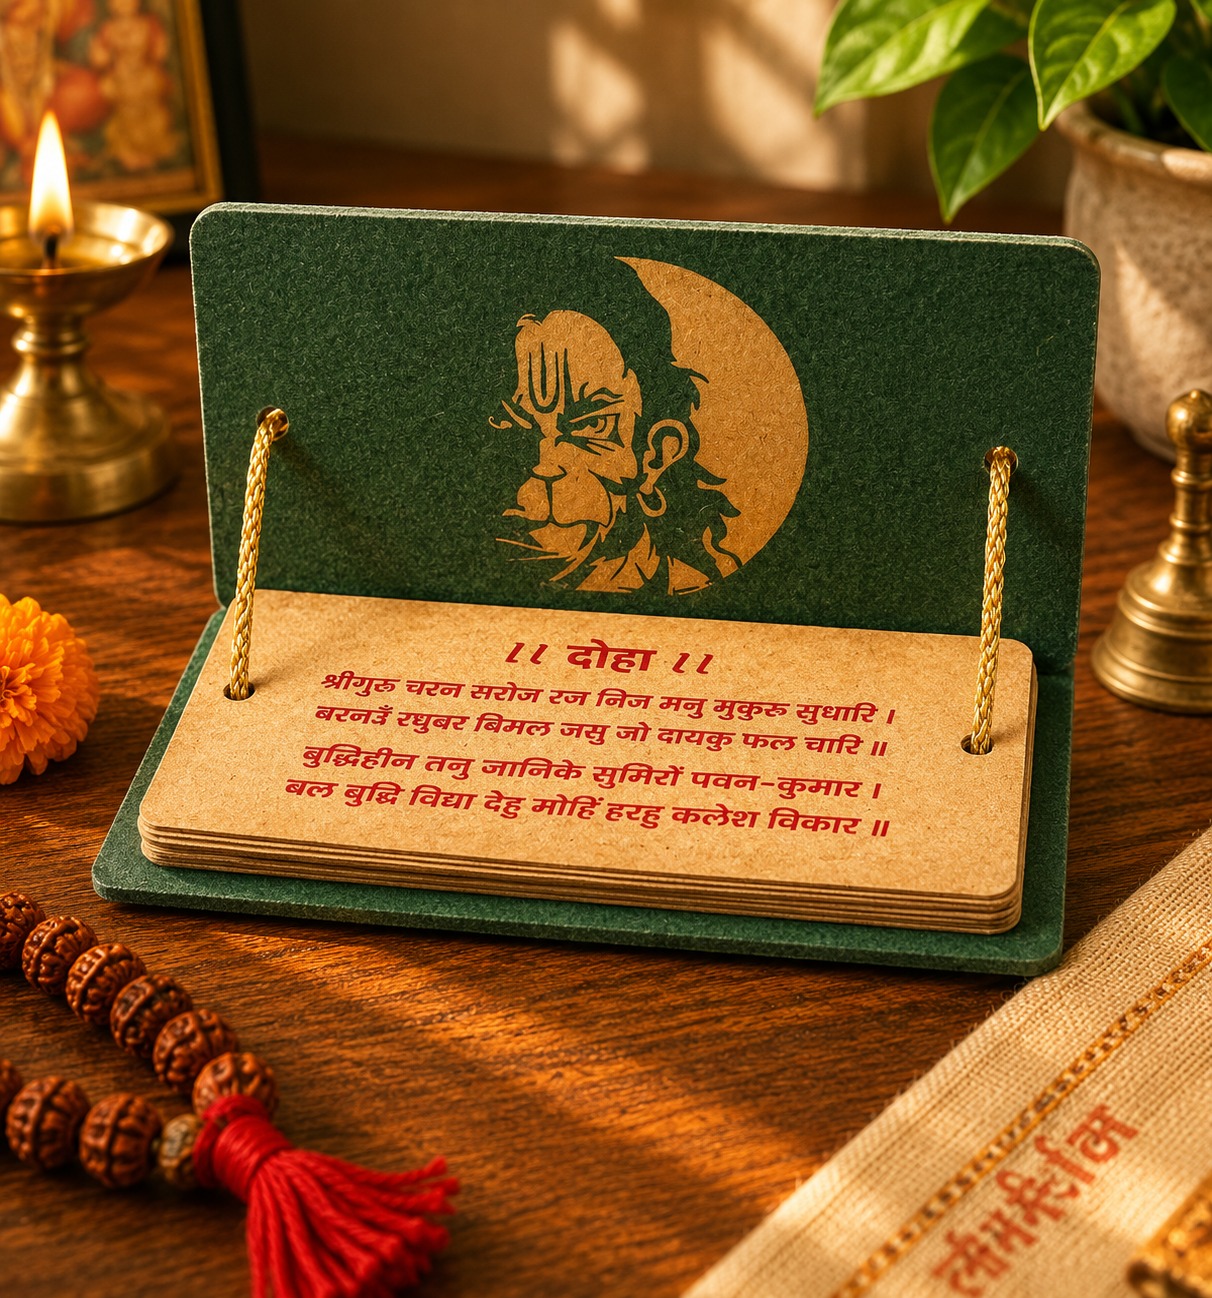 ।। दोहा ।।
श्रीगुरु चरन सरोज रज निज मनु मुकुरु सुधारि ।
बरनउँ रघुबर बिमल जसु जो दायकु फल चारि ॥
बुद्धिहीन तनु जानिके सुमिरों पवन-कुमार ।
बल बुद्धि विद्या देहु मोहिं हरहु कलेश विकार ॥